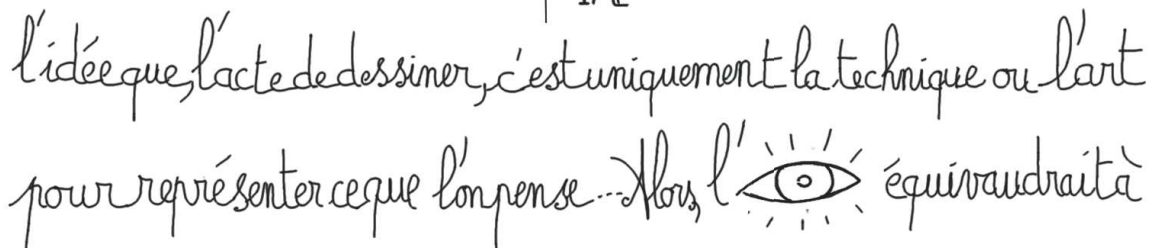 l'idée que, l'acte de dessiner, c'est uniquement la technique ou l'art
pour représenter ce que l'on pense... Alors, l' équivaudrait à